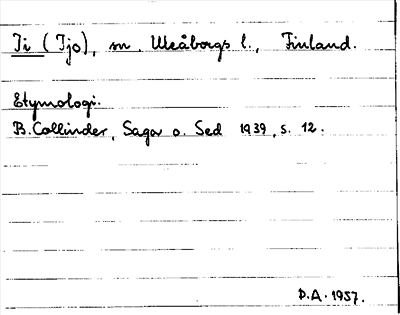 Ii (Ijo), sn. Uleåborgs l., Finland.
Etymologi.
B. Collinder, Saga o. Sed 1939, s. 12.
P.A. 1957.